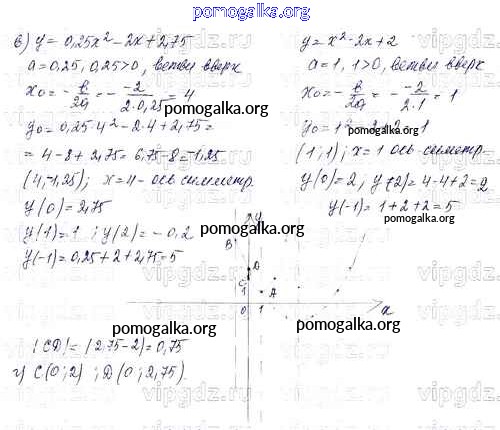 pomogalka.org
в) y = 0,25x² − 2x + 2,75
a = 0,25, 0,25 > 0, ветви вверх
x₀ = −в/2a = −−2/2·0,25 = 4
pomogalka.org
y₀ = 0,25·4² − 2·4 + 2,75 =
= 4 − 8 + 2,75 = 6,75 − 8 = −1,25
(4;−1,25); x = 4 − ось симметр.
y(0) = 2,75
y(1) = 1; y(2) = −0,2
y(−1) = 0,25 + 2 + 2,75 = 5
y = x² − 2x + 2
a = 1, 1 > 0, ветви вверх
x₀ = −в/2a = −−2/2·1 = 1
pomogalka.org
(1; 1); x = 1 ось симметр.
y(0) = 2, y(2) = 4 − 4 + 2 = 2
y(−1) = 1 + 2 + 2 = 5
pomogalka.org
pomogalka.org
y
B
D
C
1
A
0
1
x
pomogalka.org
pomogalka.org
|CD| = |2,75 − 2| = 0,75
г) C(0; 2); D(0; 2,75).
pomogalka.org